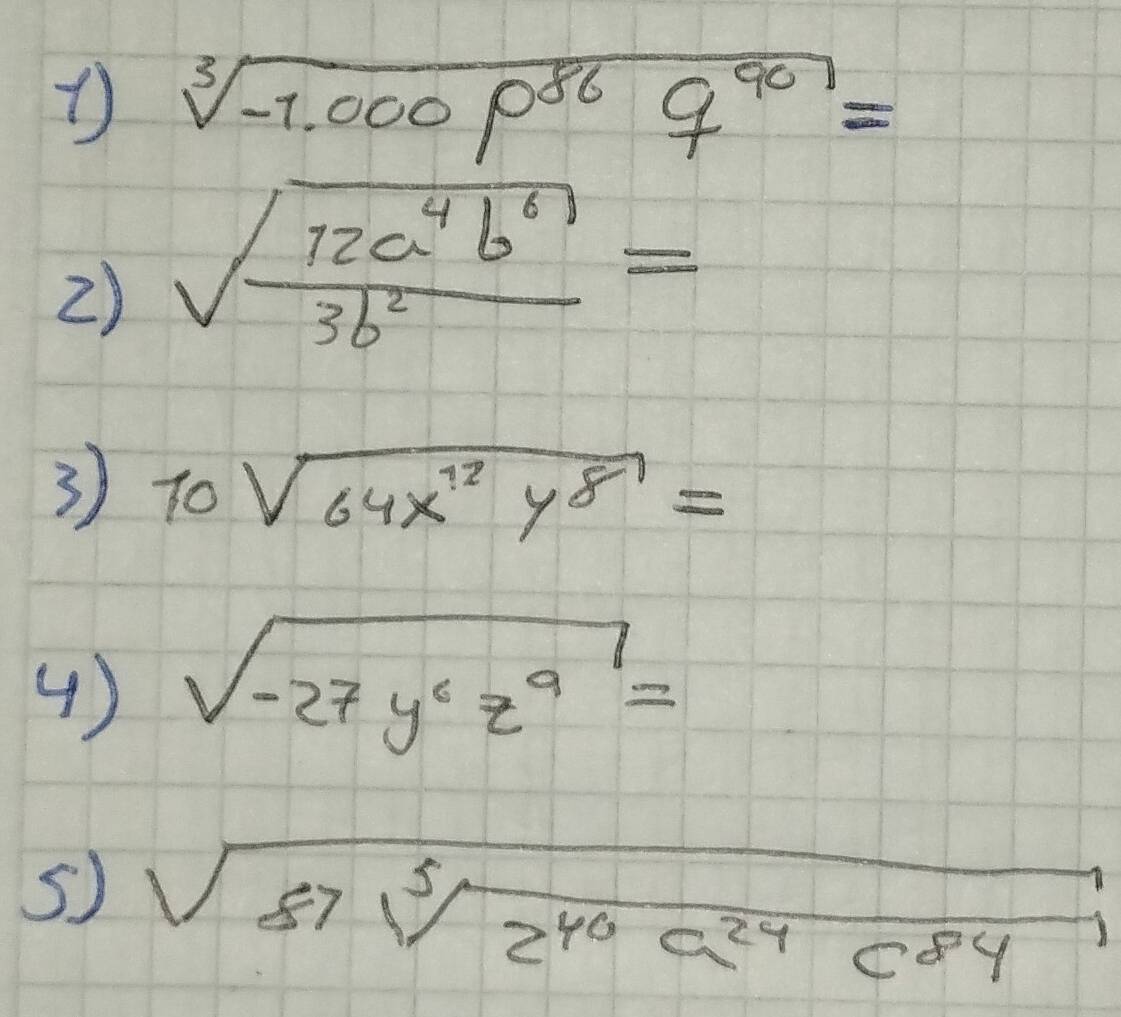 1) ∛(-1.000 p⁸⁶ q⁹⁰) =
2) √(12a⁴ b⁶ / 3b²) =
3) 10 √(64x¹² y⁸) =
4) √(-27 y⁶ z⁹) =
5) √(81 ⁵√(z⁴⁰ a²⁴ c⁸⁴))